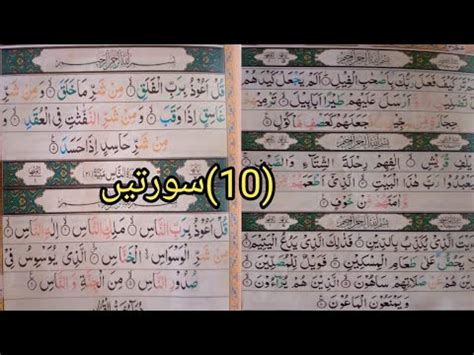 بِسْمِ اللهِ الرَّحْمٰنِ الرَّحِيْمِ
قُلْ اَعُوْذُ بِرَبِّ الْفَلَقِ ۝ مِنْ شَرِّ مَا خَلَقَ ۝ وَ مِنْ شَرِّ
غَاسِقٍ اِذَا وَقَبَ ۝ وَ مِنْ شَرِّ النَّفّٰثٰتِ فِي الْعُقَدِ ۝
وَ مِنْ شَرِّ حَاسِدٍ اِذَا حَسَدَ ۝
بِسْمِ اللهِ الرَّحْمٰنِ الرَّحِيْمِ
قُلْ اَعُوْذُ بِرَبِّ النَّاسِ ۝ مَلِكِ النَّاسِ ۝
مِنْ شَرِّ الْوَسْوَاسِ الْخَنَّاسِ ۝ الَّذِيْ يُوَسْوِسُ فِيْ
صُدُوْرِ النَّاسِ ۝ مِنَ الْجِنَّةِ وَ النَّاسِ ۝
(10)سورتیں
بِسْمِ اللهِ الرَّحْمٰنِ الرَّحِيْمِ
كَيْفَ فَعَلَ رَبُّكَ بِاَصْحٰبِ الْفِيْلِ ۝ اَلَمْ يَجْعَلْ كَيْدَهُمْ
وَّ اَرْسَلَ عَلَيْهِمْ طَيْرًا اَبَابِيْلَ ۝ تَرْمِيْهِمْ
فَجَعَلَهُمْ كَعَصْفٍ مَّاْكُوْلٍ ۝
بِسْمِ اللهِ الرَّحْمٰنِ الرَّحِيْمِ
قُرَيْشٍ ۝ اٖلٰفِهِمْ رِحْلَةَ الشِّتَآءِ وَ الصَّيْفِ ۝
رَبَّ هٰذَا الْبَيْتِ ۝ الَّذِيْ
مِّنْ خَوْفٍ ۝
بِسْمِ اللهِ الرَّحْمٰنِ الرَّحِيْمِ
الَّذِيْ يُكَذِّبُ بِالدِّيْنِ ۝ فَذٰلِكَ الَّذِيْ يَدُعُّ الْيَتِيْمَ ۝
يَحُضُّ عَلٰى طَعَامِ الْمِسْكِيْنِ ۝ فَوَيْلٌ لِّلْمُصَلِّيْنَ ۝
هُمْ عَنْ صَلَاتِهِمْ سَاهُوْنَ ۝ الَّذِيْنَ هُمْ يُرَآءُوْنَ ۝
وَ يَمْنَعُوْنَ الْمَاعُوْنَ ۝